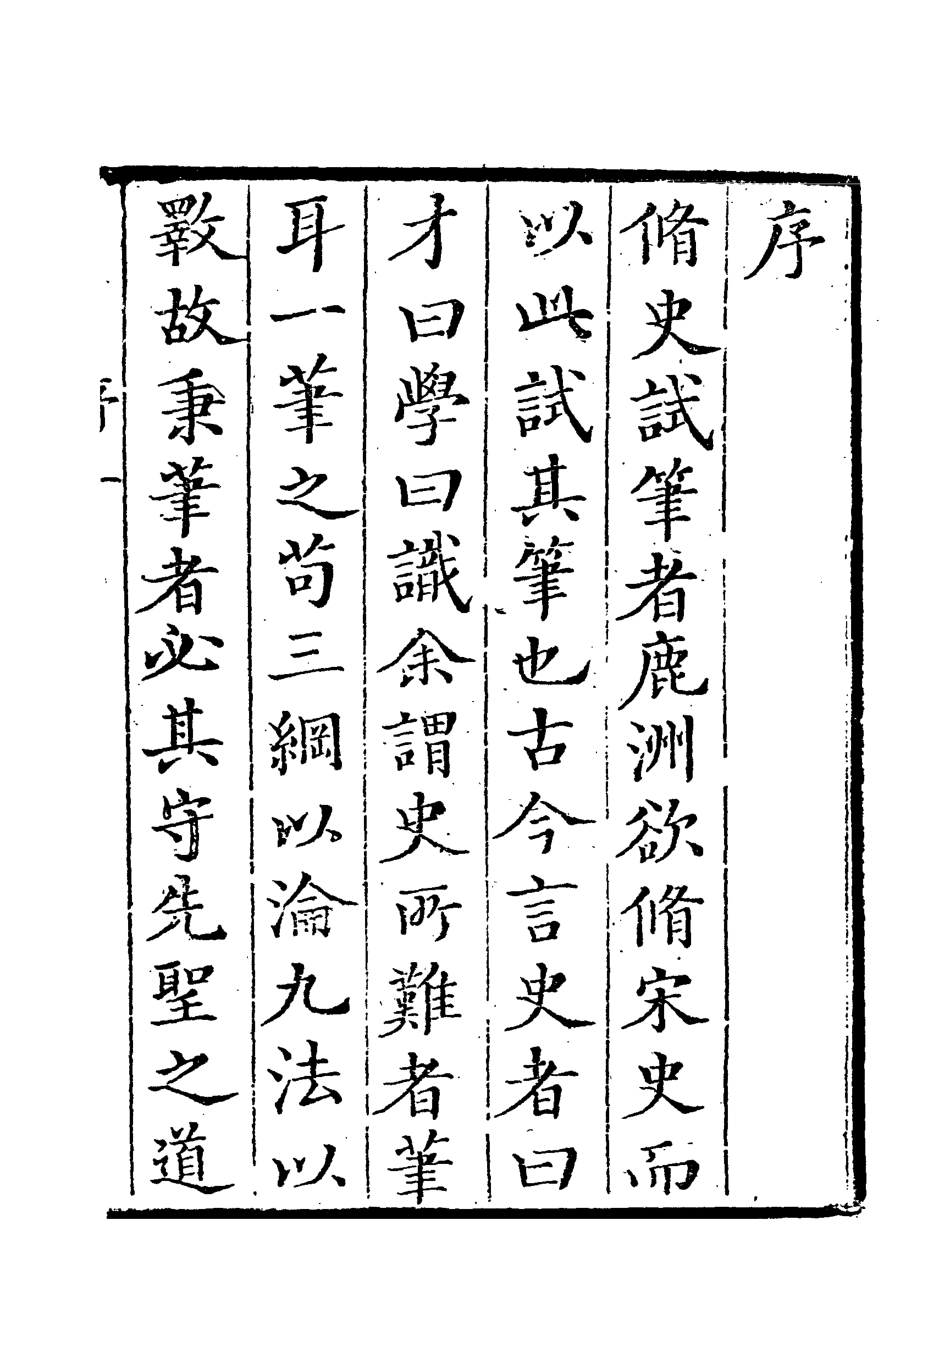 序
脩史試筆者鹿洲欲脩宋史而
以此試其筆也古今言史者曰
才曰學曰識余謂史所難者筆
耳一筆之苟三綱以淪九法以
斁故秉筆者必其守先聖之道